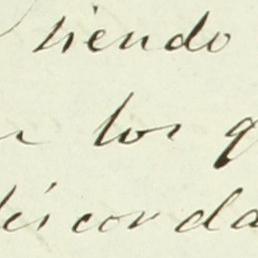 siendo
los q
discorda